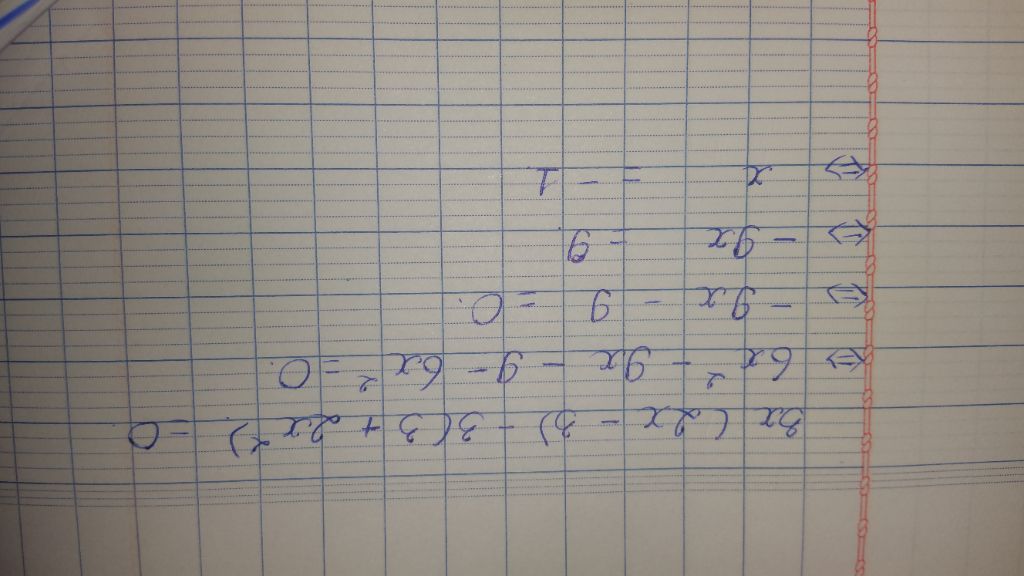 3x (2x - 3) - 3(3 + 2x²) = 0
⇔ 6x² - 9x - 9 - 6x² = 0
⇔ - 9x - 9 = 0
⇔ - 9x = 9
⇔ x = - 1